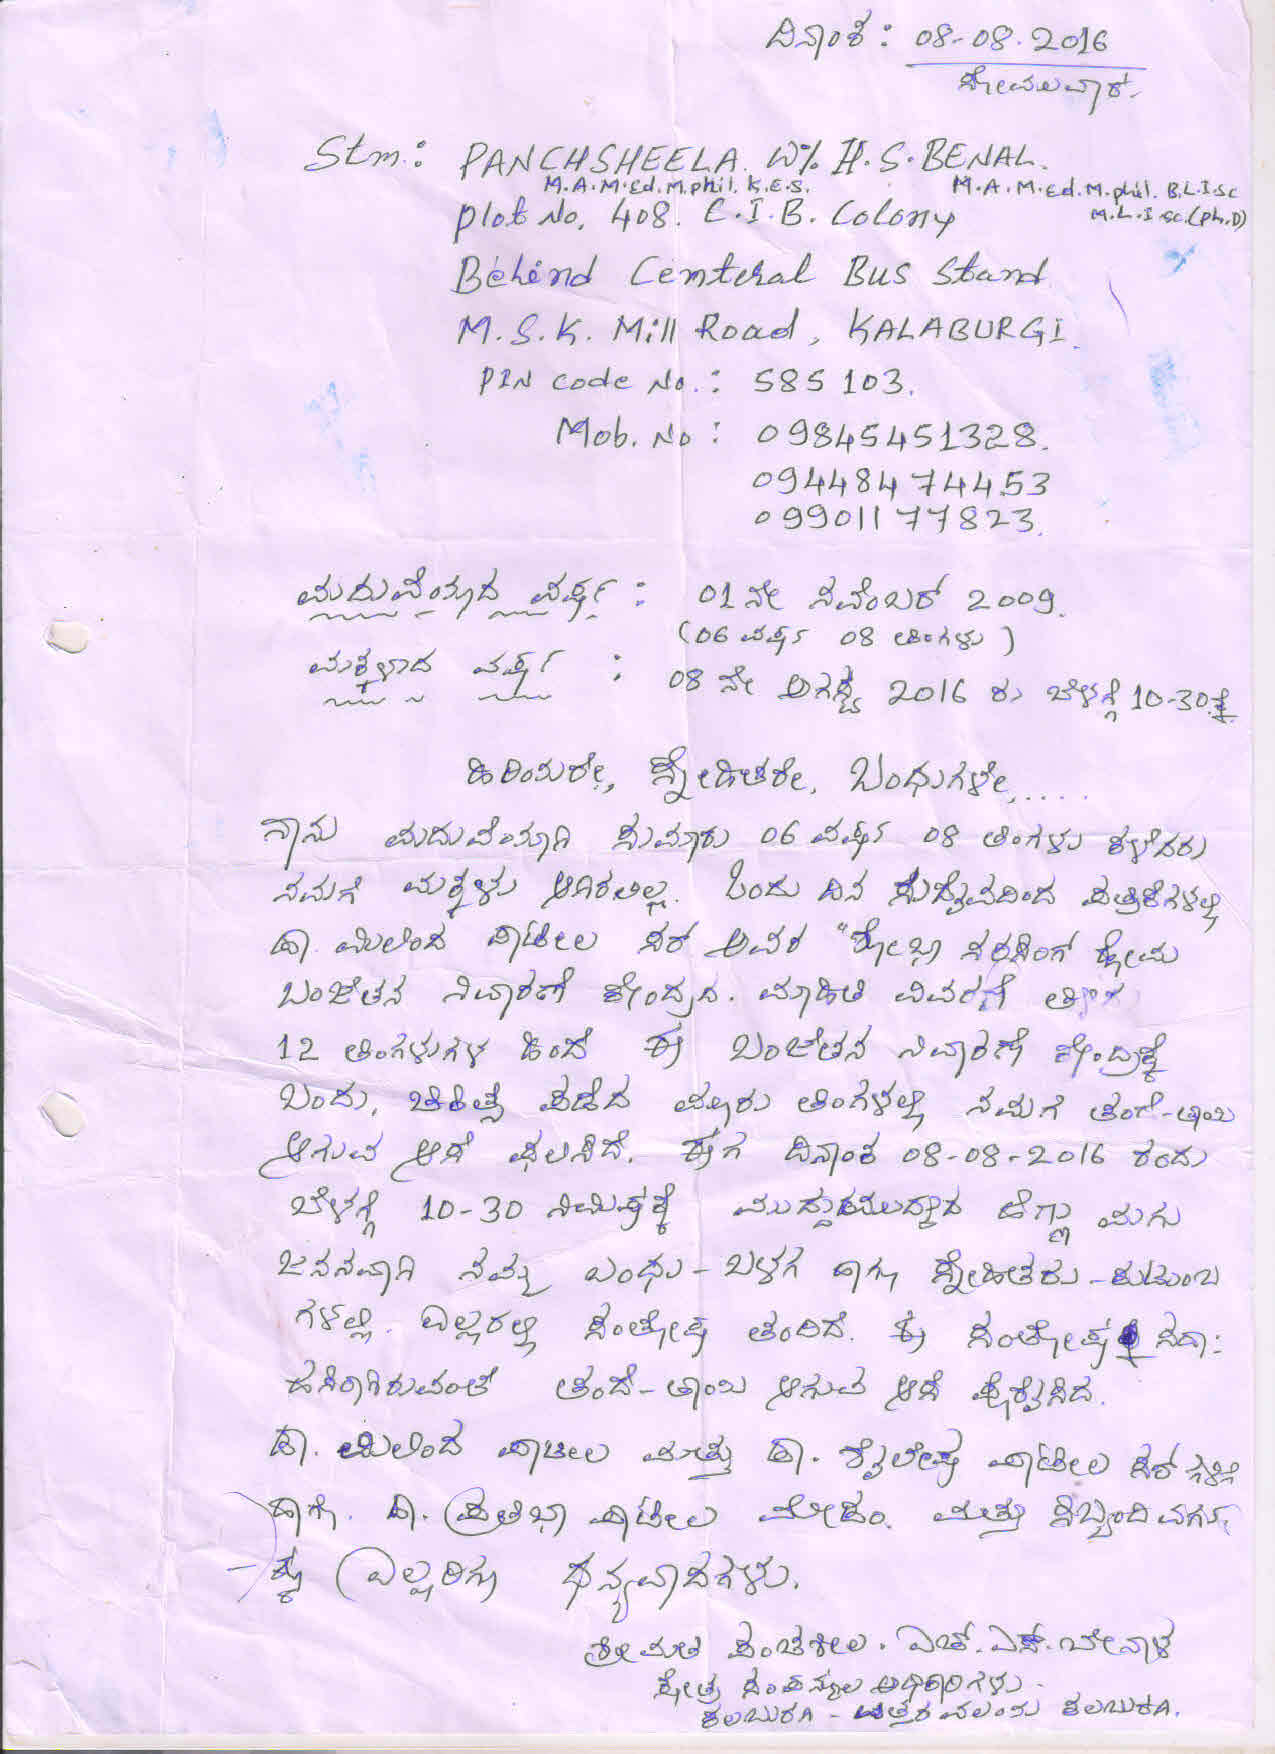 ದಿನಾಂಕ: 08-08-2016
ಸೋಮವಾರ.
Stm.: PANCHSHEELA. W% H.S.BENAL.
M.A.M.Ed.M.phil.K.E.S. M.A.M.Ed.M.phil.B.L.I.sc
M.L.I.sc.(ph.D)
plot No. 408. C.I.B. Colony
Behind Centeral Bus Stand
M.S.K. Mill Road, KALABURGI.
PIN code No.: 585 103.
Mob. No: 09845451328.
09448474453
09901177823.
ಮದುವೆಯಾದ ವರ್ಷ: 01ನೇ ನವೆಂಬರ್ 2009.
(06 ವರ್ಷ 08 ತಿಂಗಳು)
ಮಕ್ಕಳಾದ ವರ್ಷ : 08ನೇ ಅಗಸ್ಟ 2016 ರು ಬೆಳಗ್ಗೆ 10-30ಕ್ಕೆ
ಹಿರಿಯರೇ, ಸ್ನೇಹಿತರೇ, ಬಂಧುಗಳೇ,.....
ನಾನು ಮದುವೆಯಾಗಿ ಸುಮಾರು 06 ವರ್ಷ 08 ತಿಂಗಳು ಕಳೆದರು
ನಮಗೆ ಮಕ್ಕಳು ಆಗಿರಲಿಲ್ಲ. ಒಂದು ದಿನ ಸುದೈವದಿಂದ ಪತ್ರಿಕೆಗಳಲ್ಲಿ
ಡಾ. ಮಿಲಿಂದ ಪಾಟೀಲ ಸರ್ ಅವರ "ಶೋಭಾ ನರ್ಸಿಂಗ್ ಹೋಮ
ಬಂಜೆತನ ನಿವಾರಣೆ ಕೇಂದ್ರದ. ಮಾಹಿತಿ ವಿವರಣೆ
12 ತಿಂಗಳುಗಳ ಹಿಂದೆ ಈ ಬಂಜೆತನ ನಿವಾರಣೆ ಕೇಂದ್ರಕ್ಕೆ
ಬಂದು, ಚಿಕಿತ್ಸೆ ಪಡೆದ ಮೂರು ತಿಂಗಳಲ್ಲಿ ನಮಗೆ ತಂದೆ-ತಾಯಿ
ಆಗುವ ಆಸೆ ಫಲಿಸಿದೆ. ಈಗ ದಿನಾಂಕ 08-08-2016 ರಂದು
ಬೆಳಗ್ಗೆ 10-30 ನಿಮಿಷಕ್ಕೆ ಮುದ್ದಾದ ಹೆಣ್ಣು ಮಗು
ಜನನವಾಗಿ ನಮ್ಮ ಬಂಧು-ಬಳಗ ಹಾಗೂ ಸ್ನೇಹಿತರು-ಕುಟುಂಬ
ಗಳಲ್ಲಿ. ಎಲ್ಲರಲ್ಲಿ ಸಂತೋಷ ತಂದಿದೆ. ಈ ಸಂತೋಷ ಸದಾ:
ಹಸಿರಾಗಿರುವಂತೆ ತಂದೆ-ತಾಯಿ ಆಗುವ ಆಸೆ ಪೂರೈಸಿದ.
ಡಾ. ಮಿಲಿಂದ ಪಾಟೀಲ ಮತ್ತು ಡಾ. ಶೈಲೇಷ ಪಾಟೀಲ ಸರ್ ಗಳಿಗೆ
ಹಾಗೂ. ಡಾ. ಪ್ರತಿಭಾ ಪಾಟೀಲ ಮೇಡಂ. ಮತ್ತು ಸಿಬ್ಬಂದಿ ವರ್ಗ
ಕ್ಕೆ ಎಲ್ಲರಿಗೂ ಧನ್ಯವಾದಗಳು.
ಶ್ರೀಮತಿ ಪಂಚಶೀಲ. ಎಚ್.ಎಸ್. ಬೇನಾಳ
ಕ್ಷೇತ್ರ ಸಂಪನ್ಮೂಲ ಅಧಿಕಾರಿಗಳು.
ಕಲಬುರಗಿ - ಉತ್ತರ ವಲಯ ಕಲಬುರಗಿ.